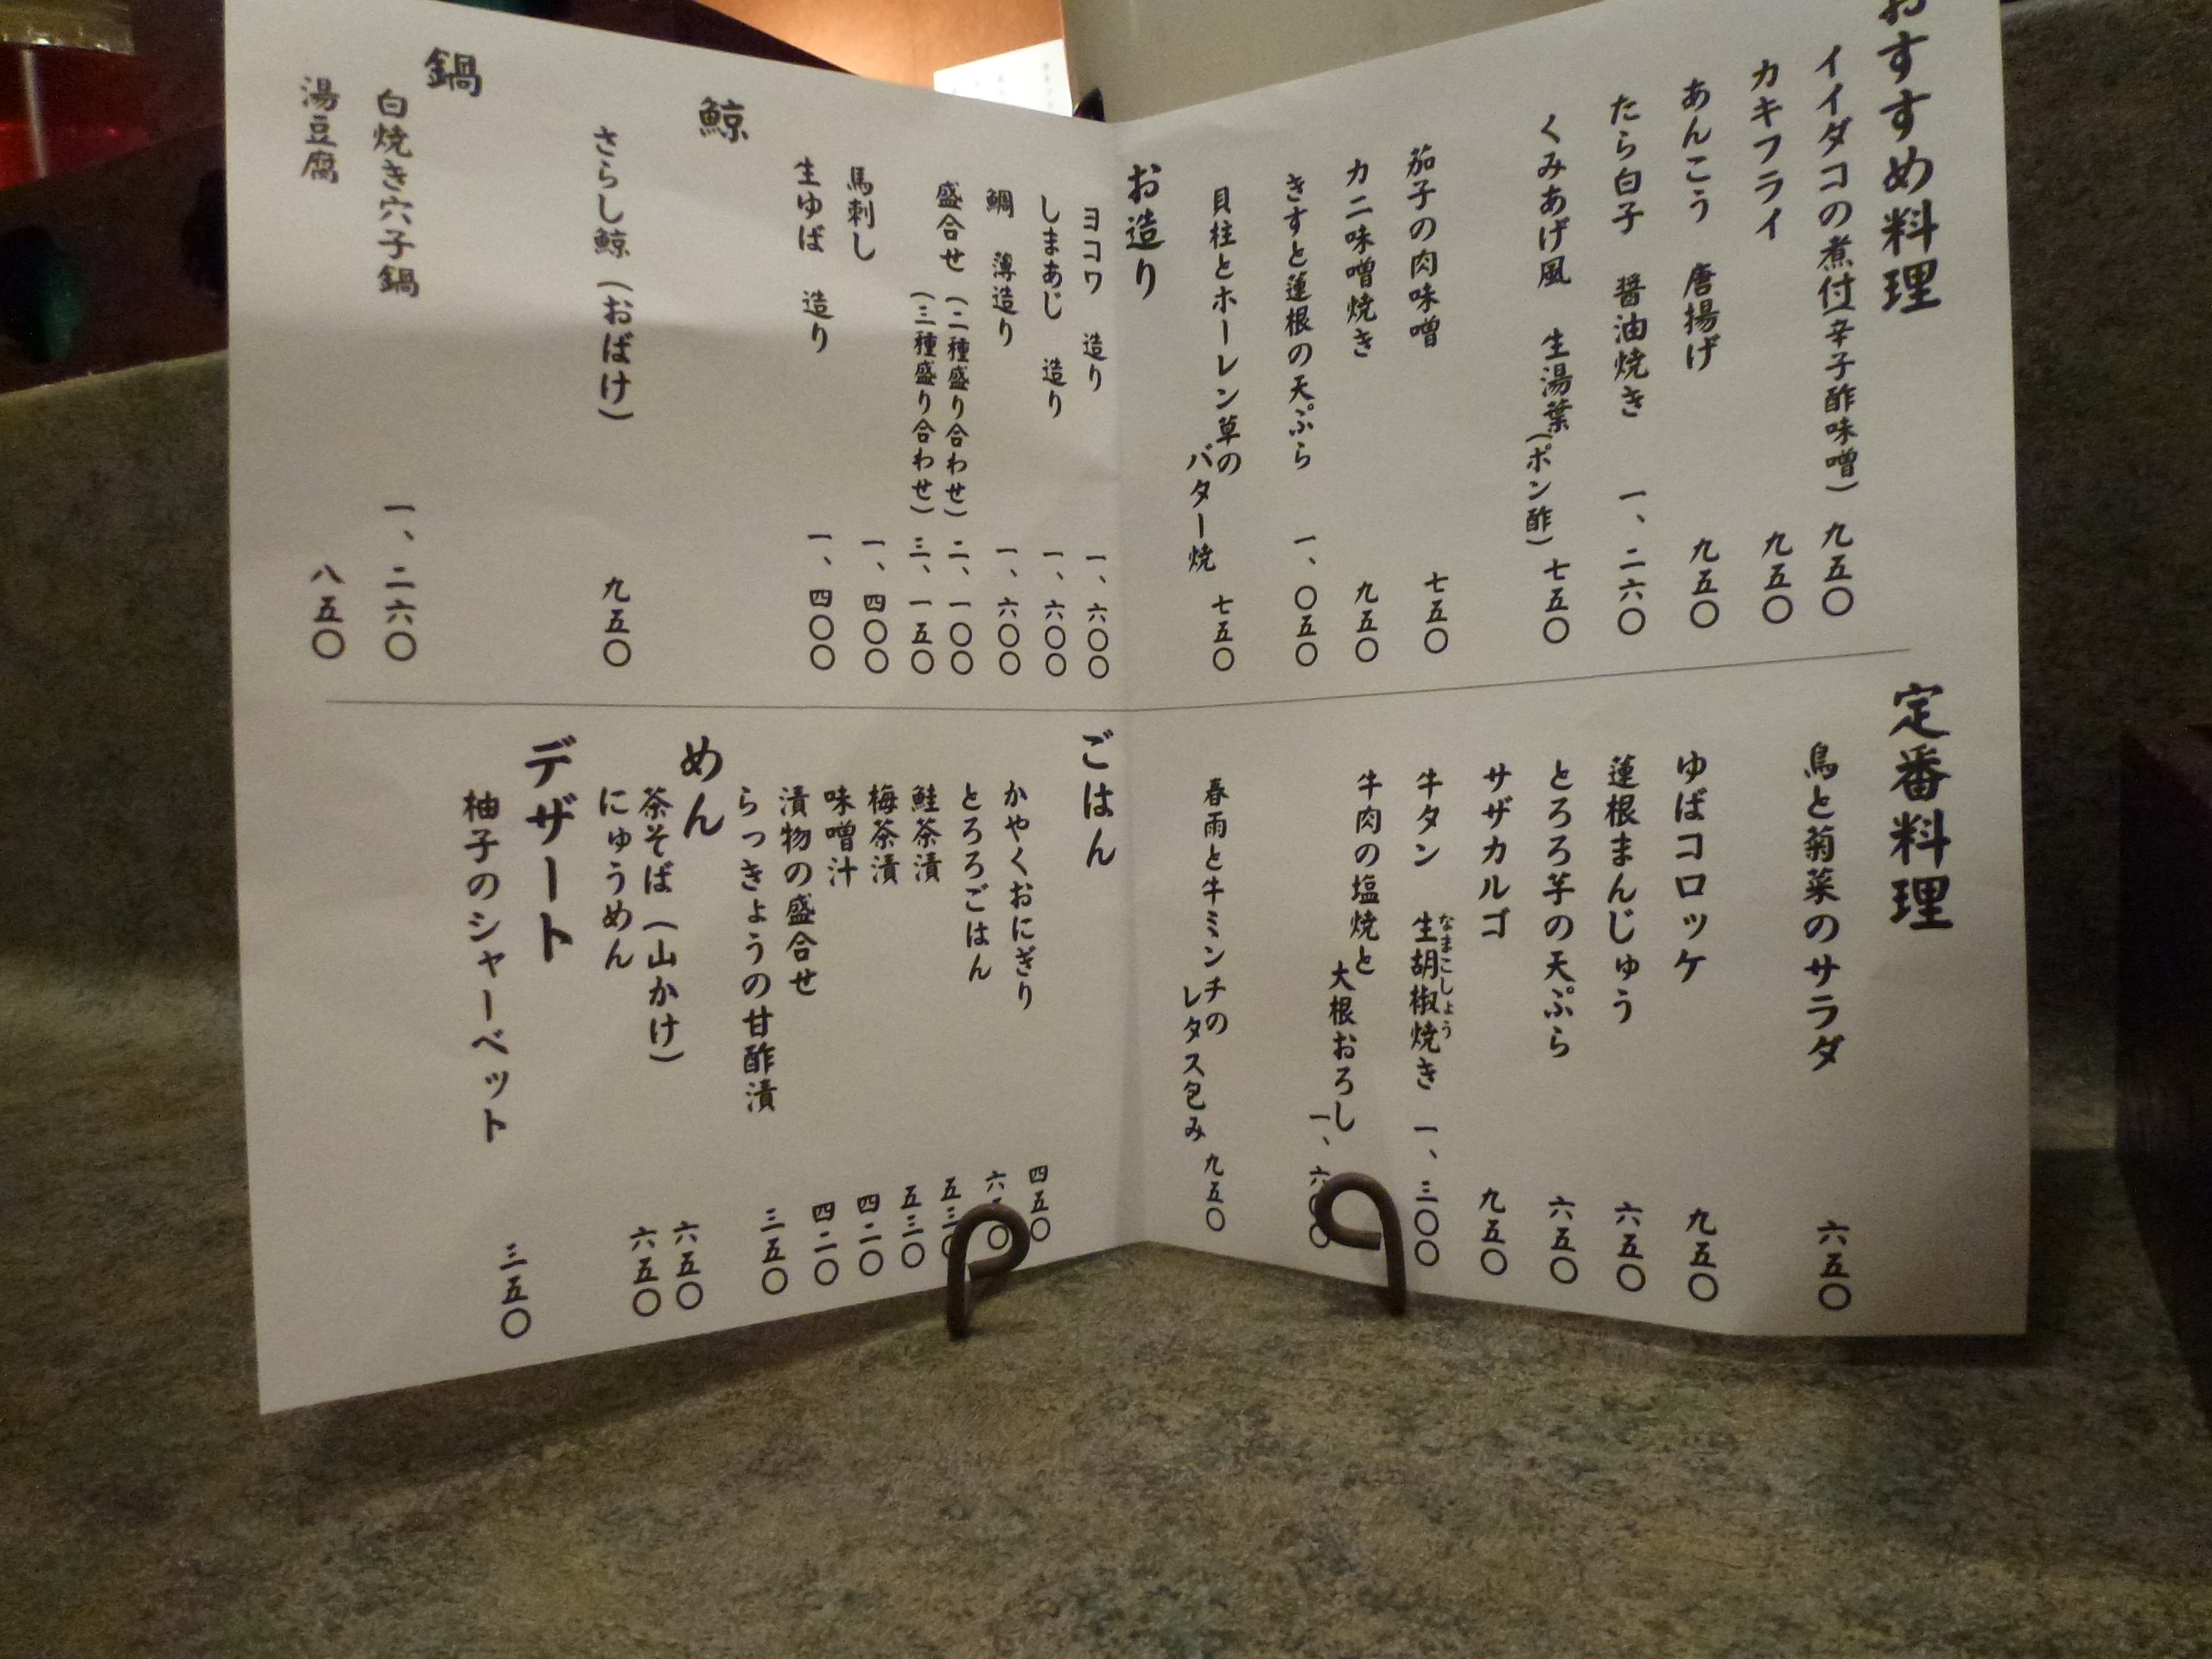 おすすめ料理
イイダコの煮付(辛子酢味噌) 九五〇
カキフライ 九五〇
あんこう 唐揚げ 九五〇
たら白子 醤油焼き 一、二六〇
くみあげ風 生湯葉(ポン酢) 七五〇
茄子の肉味噌 七五〇
カニ味噌焼き 九五〇
きすと蓮根の天ぷら 一、〇五〇
貝柱とホーレン草の
バター焼 七五〇
お造り
ヨコワ 造り 一、六〇〇
しまあじ 造り 一、六〇〇
鯛 薄造り 一、六〇〇
盛合せ(二種盛り合わせ) 二、一〇〇
(三種盛り合わせ) 三、一五〇
馬刺し 一、四〇〇
生ゆば 造り 一、四〇〇
鯨
さらし鯨(おばけ) 九五〇
鍋
白焼き穴子鍋 一、二六〇
湯豆腐 八五〇
定番料理
鳥と菊菜のサラダ 六五〇
ゆばコロッケ 九五〇
蓮根まんじゅう 六五〇
とろろ芋の天ぷら 六五〇
サザカルゴ 九五〇
牛タン 生胡椒焼き 一、三〇〇
なまこしょう
牛肉の塩焼と
大根おろし
春雨と牛ミンチの
レタス包み 九五〇
ごはん
かやくおにぎり 四五〇
とろろごはん
鮭茶漬 五三〇
梅茶漬 五三〇
味噌汁 四二〇
漬物の盛合せ 四二〇
らっきょうの甘酢漬 三五〇
めん
茶そば(山かけ) 六五〇
にゅうめん 六五〇
デザート
柚子のシャーベット 三五〇